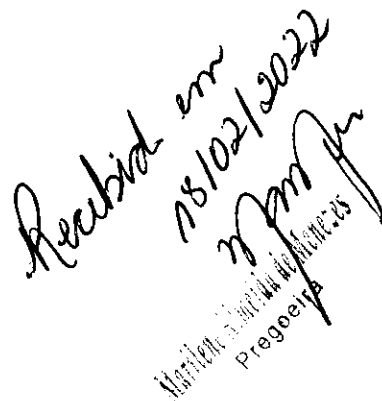 Recebid em
18/02/2022
Marilene Almeida de Menezes
Pregoeira